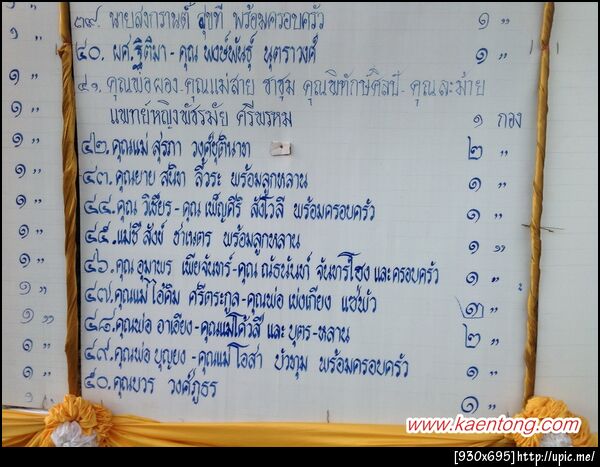 ๓๙. นายสงกรานต์ สุขที พร้อมครอบครัว ๑ "
๔๐. ผศ.ฐิติมา - คุณ พงษ์พันธุ์ นุตราวงศ์ ๑ "
๔๑. คุณพ่อผอง - คุณแม่สาย ชาชุม คุณพิทักษ์ศิลป์ - คุณละม้าย
แพทย์หญิงพัชรมัย ศรีพรหม ๑ กอง
๔๒. คุณแม่ สุรภา วงศ์ชุตินาท ๒ "
๔๓. คุณยาย สนิท ลิ้วระ พร้อมลูกหลาน ๑ "
๔๔. คุณ วิเชียร - คุณ เพ็ญศิริ สังโวลี พร้อมครอบครัว ๑ "
๔๕. แม่ชี สังข์ ชาเนตร พร้อมลูกหลาน ๑ "
๔๖. คุณ อุมาพร เพียจันทร์ - คุณ ณัธนันท์ จันทรโฮง และครอบครัว ๑ "
๔๗. คุณแม่ ไอ้คิม ศรีตระกูล - คุณพ่อ เพ่งเกียง แซ่พัว ๓ "
๔๘. คุณพ่อ อาเอียง - คุณแม่โค้วสี และ บุตร - หลาน ๒ "
๔๙. คุณพ่อ บุญยง - คุณแม่ โอสา บัวทุม พร้อมครอบครัว ๑ "
๕๐. คุณบวร วงศ์ภูธร ๑ "
www.kaentong.com
[930x695] http://upic.me/